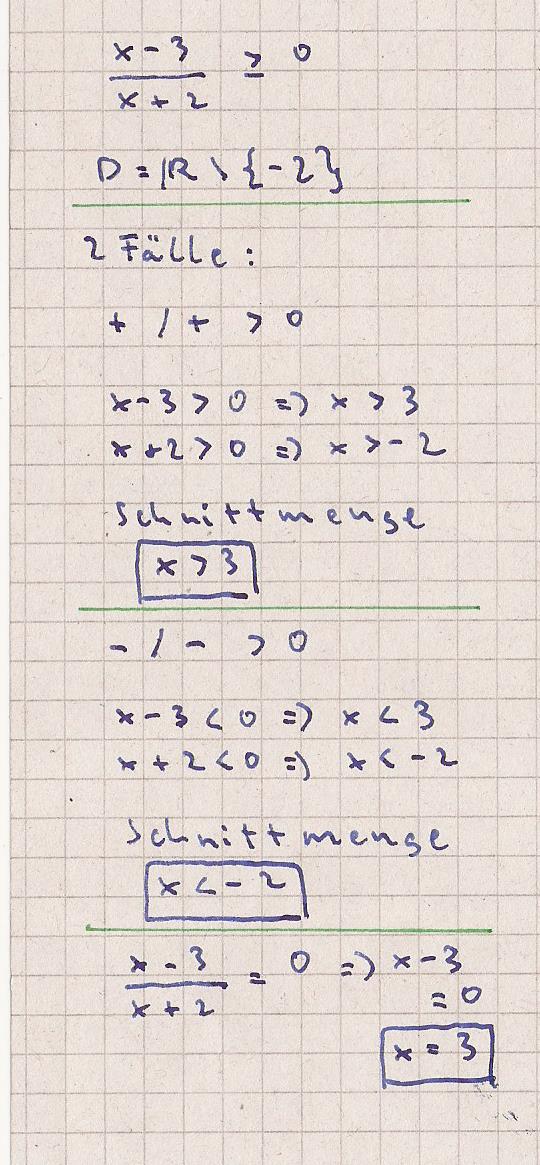 x - 3
x + 2
≥ 0
D = ℝ \ {-2}
2 Fälle:
+ / + > 0
x - 3 > 0 => x > 3
x + 2 > 0 => x > - 2
Schnittmenge
x > 3
- / - > 0
x - 3 < 0 => x < 3
x + 2 < 0 => x < - 2
Schnittmenge
x < - 2
x - 3
x + 2
= 0 => x - 3
= 0
x = 3